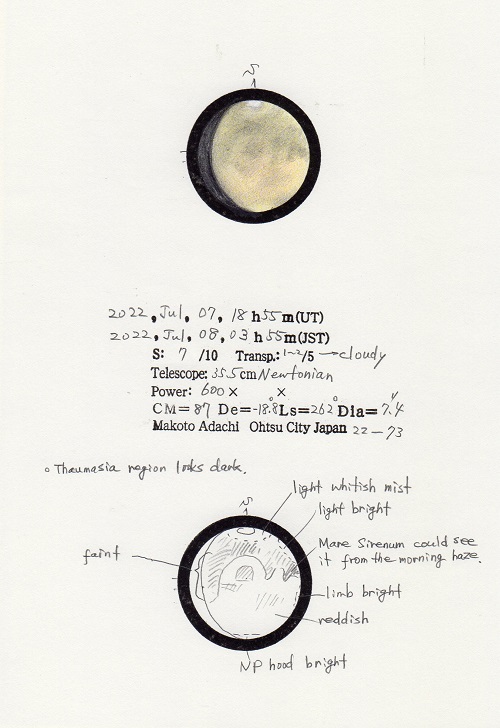 S
2022, Jul, 07, 18 h 55 m (UT)
2022, Jul, 08, 03 h 55 m (JST)
S: 7 /10 Transp.: 1~2/5 → cloudy
Telescope: 35.5 cm Newtonian
Power: 600 × ×
CM= 87 De= -18.8° Ls= 262° Dia= 7.4"
Makoto Adachi Ohtsu City Japan 22-73
○ Thaumasia region looks dark.
light whitish mist
S
light bright
Mare Sirenum could see
it from the morning haze.
faint
limb bright
reddish
NP hood bright